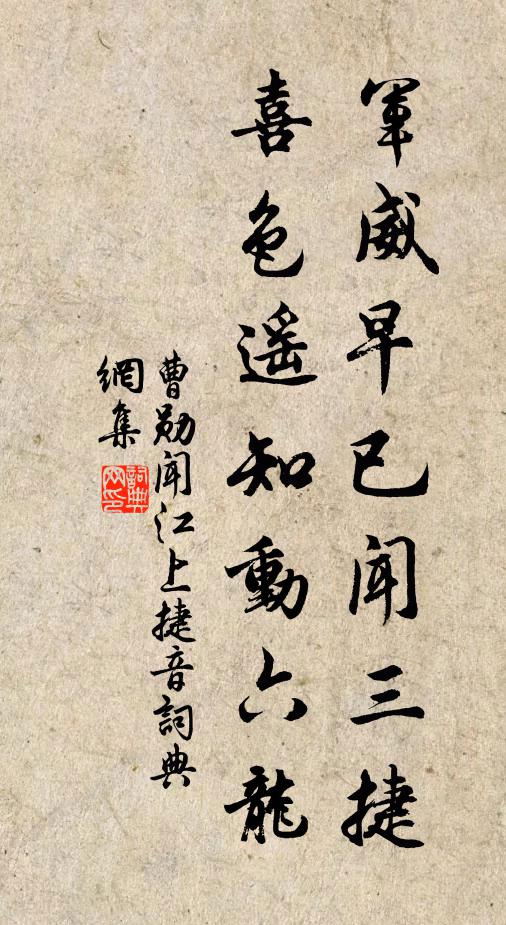 軍威早已聞三捷
喜色遥知動六龍
曹勛聞江上捷音詞典
網集
詞典
网印